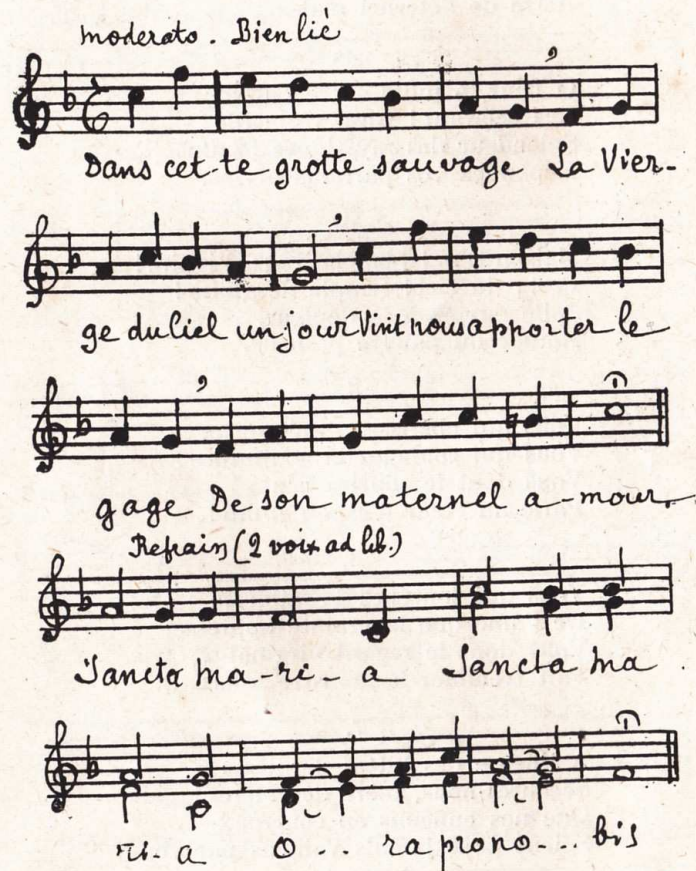 moderato. Bien lié
Dans cet-te grotte sauvage La Vier-
ge du Ciel un jour Vint nous apporter le
gage De son maternel a-mour.
Refrain (2 voix ad lib.)
Sancta ma-ri-a Sancta ma
ri-a O... ra prono-... bis